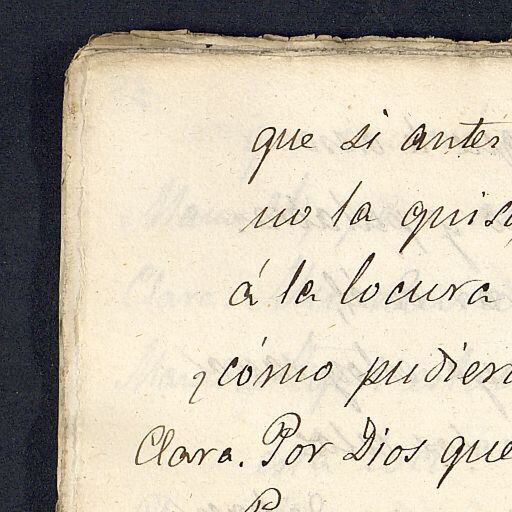 que si antes
no la quis
á la locura
¿cómo pudier
Clara. Por Dios que